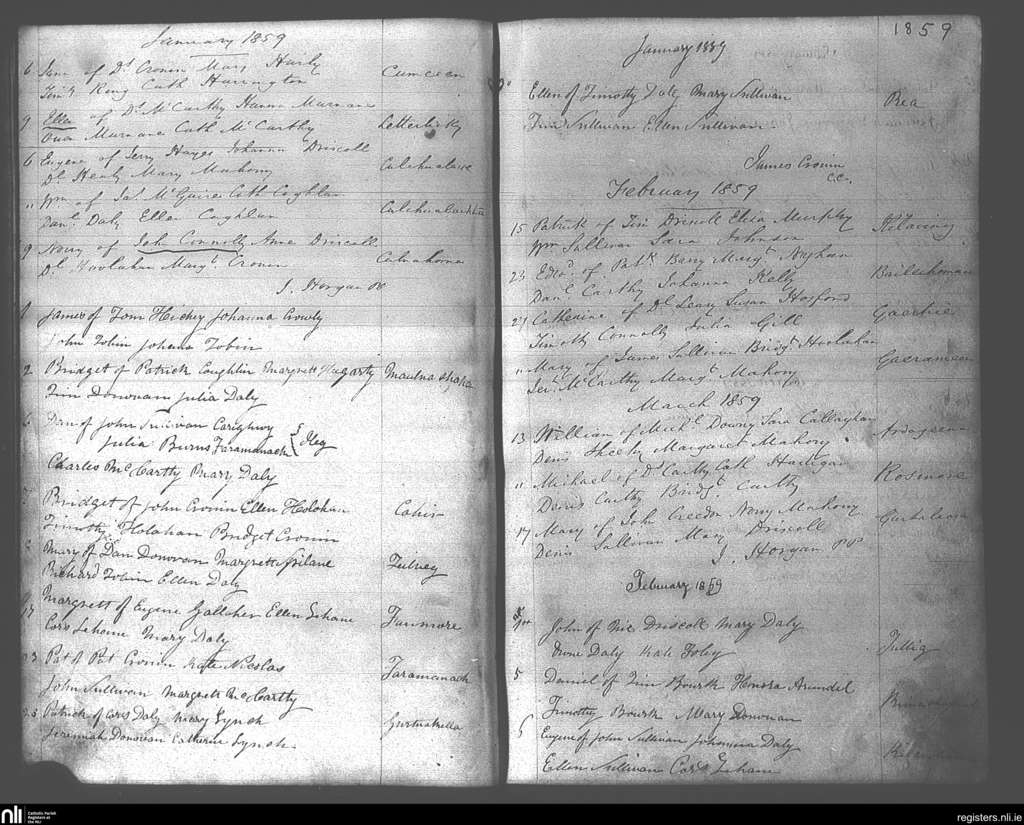 January 1859
6 Jane of Dl. Cronin Mary Hurly
Timy. Ring Cath Harrington
Cumceen
9 Ellen of Dl. McCarthy Hanna Murnane
Owen Murnane Cath McCarthy
Letterlicky
6 Eugene of Jerry Hayes Johanna Driscoll
Dl. Healy Mary Mahony
" Wm. of Jas. McGuire Cath Coghlan
Danl. Daly Ellen Coghlan
9 Nory of John Connolly Anne Driscoll
Dl. Hoolahan Margt. Cronin
Calnahoma
J. Horgan PP
1 James of Tom Hickey Johanna Crowly
John Tobin Johana Tobin
2 Bridget of Patrick Coughlin Margrett Hegarty
Maulnaskaha
Tim Donovan Julia Daly
6 Dan of John Sullivan
Julia Burns Faramanach
Charles McCarthy Mary Daly
Bridget of John Cronin Ellen Holohan
Cahir
Timothy Holahan Bridget Cronin
Mary of Dan Donovan Margrett
Richard Tobin Ellen Daly
17 Margrett of Eugene Gallaher Ellen Lehane
Farnmore
Cors Lehane Mary Daly
23 Pat of Pat Cronin Kate Nicolas
Faramanach
John Sullivan Margrett McCarthy
25 Patrick of Cors Daly Mary Lynch
Jeremiah Donovan Catherin Lynch
1859
January 1859
Ellen of Timothy Daly Mary Sullivan
Rea
Tim Sullivan Ellen Sullivan
James Cronin
CC.
February 1859
15 Patrick of Tim Driscoll Eliza Murphy
Wm Sullivan Sara Johnson
23 Edwd. of Patk. Barry Margt.
Danl Carthy Johanna Kelly
27 Catherine of Dl. Leary Susan Hosford
Timoth Connolly Julia Gill
" Mary of James Sullivan Bridgt. Hoolahan
Jer. McCarthy Margt. Mahony
March 1859
13 William of Michl. Downy Sara Callaghan
Denis Sheehy Margaret Mahony
Ardogeena
" Michael of Dl. Carthy Cath Hadigan
Denis Carthy Bridgt. Carthy
Rosmore
17 Mary of John Creedon Nory Mahony
Denis Sullivan Mary Driscoll
J. Horgan PP
February 1859
John of Mic Driscoll Mary Daly
Owne Daly Kate Foley
5 Daniel of Tim Bourk Honora Arundel
Timothy Bourk Mary Donovan
6 Eugene of John Sullivan Johanna Daly
Ellen Sullivan Cors. Lehane
nli
Catholic Parish
Registers at
the NLI
registers.nli.ie